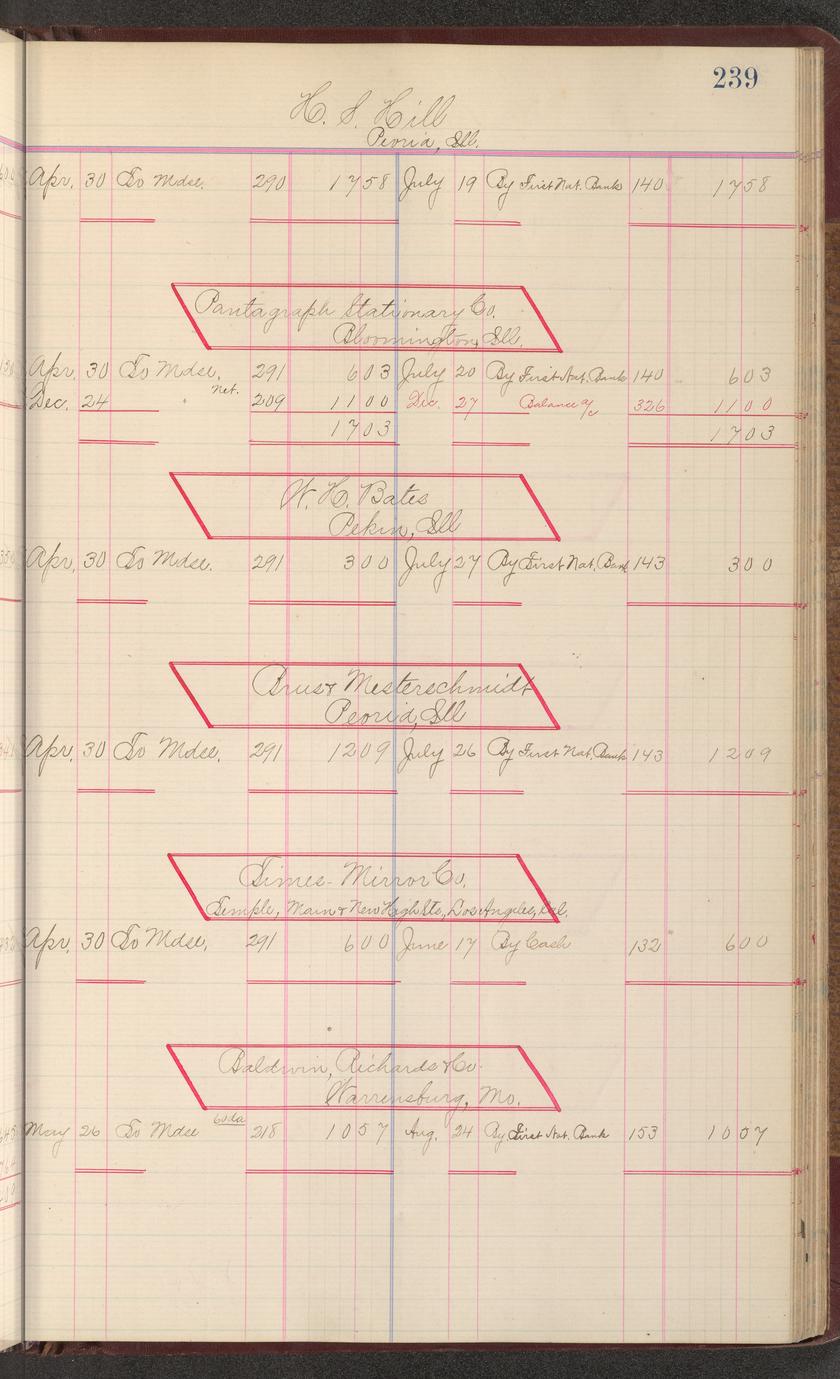 239
H. S. Hill
Peoria, Ill.
Apr. 30 To Mdse. 290 1758 July 19 By First Nat. Bank 140 1758
Pantagraph Stationary Co.
Bloomington, Ill.
Apr. 30 To Mdse. 291 603 July 20 By First Nat. Bank 140 603
Dec. 24 " net. 209 1100 Dec. 27 Balance a/c 326 1100
1703 1703
W. H. Bates
Pekin, Ill
Apr. 30 To Mdse. 291 300 July 27 By First Nat. Bank 143 300
Brus & Mesterschmidt
Peoria, Ill
Apr. 30 To Mdse. 291 1209 July 26 By First Nat. Bank 143 1209
Times-Mirror Co.
Temple, Main & New High Sts, Los Angeles, Cal.
Apr. 30 To Mdse. 291 600 June 17 By Cash 132 600
Baldwin, Richards & Co.
Warrensburg, Mo.
May 26 To Mdse 60 da 218 1057 Aug. 24 By First Nat. Bank 153 1057